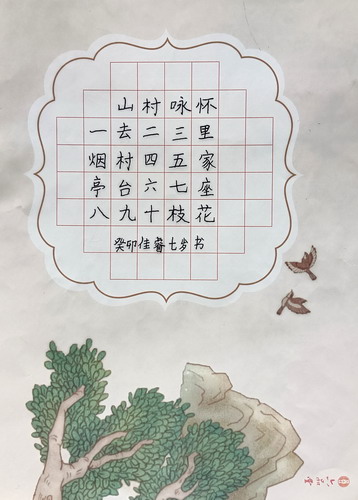 山村咏怀
一去二三里
烟村四五家
亭台六七座
八九十枝花
癸卯佳睿七岁书